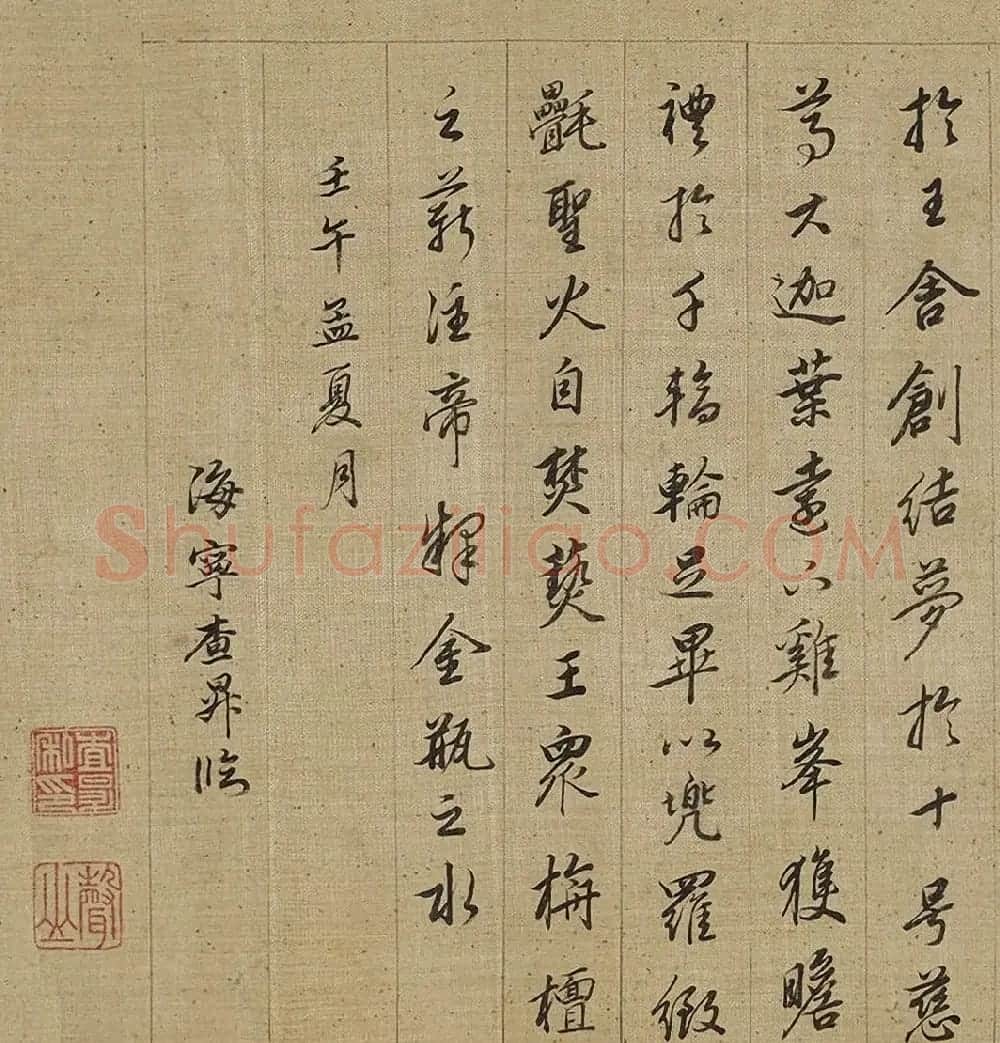 於王舍創結夢於十号慈
尊大迦葉遠辭雞峯獲瞻
禮於千輻輪足畢以兜羅緻
㲲聖火自焚爇王眾栴檀
之薪注帝釋金瓶之水
壬午孟夏月
海寧查昇臨
查昇私印
聲山
Shufaziliao.COM